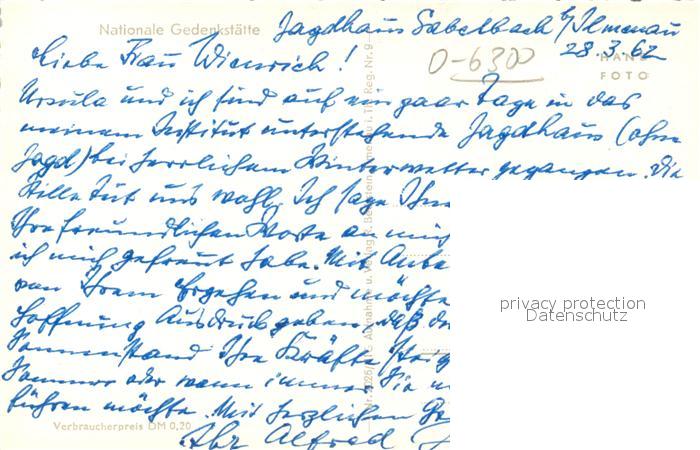 Nationale Gedenkstätte
Jagdhaus Gabelbach b/Ilmenau
28.3.62
HANS
FOTO
0-6300
Liebe Frau Wienrich!
Ursula und ich sind auf ein paar Tage in das
meinem Institut unterstehende Jagdhaus (ohne
Jagd) bei herrlichem Winterwetter gegangen. Die
Stille tut uns wohl. Ich sage Ihne
Ihre freundlichen Worte an mich
ich mich gefreut habe. Mit Ante
von Ihrem Ergehen und möchte
Hoffnung Ausdruck geben, daß de
Sonnenstand Ihre Kräfte steig
Sommer oder wann immer Sie
führen möchte. Mit herzlichen Gr
Ihr Alfred
Verbraucherpreis DM 0,20
privacy protection
Datenschutz